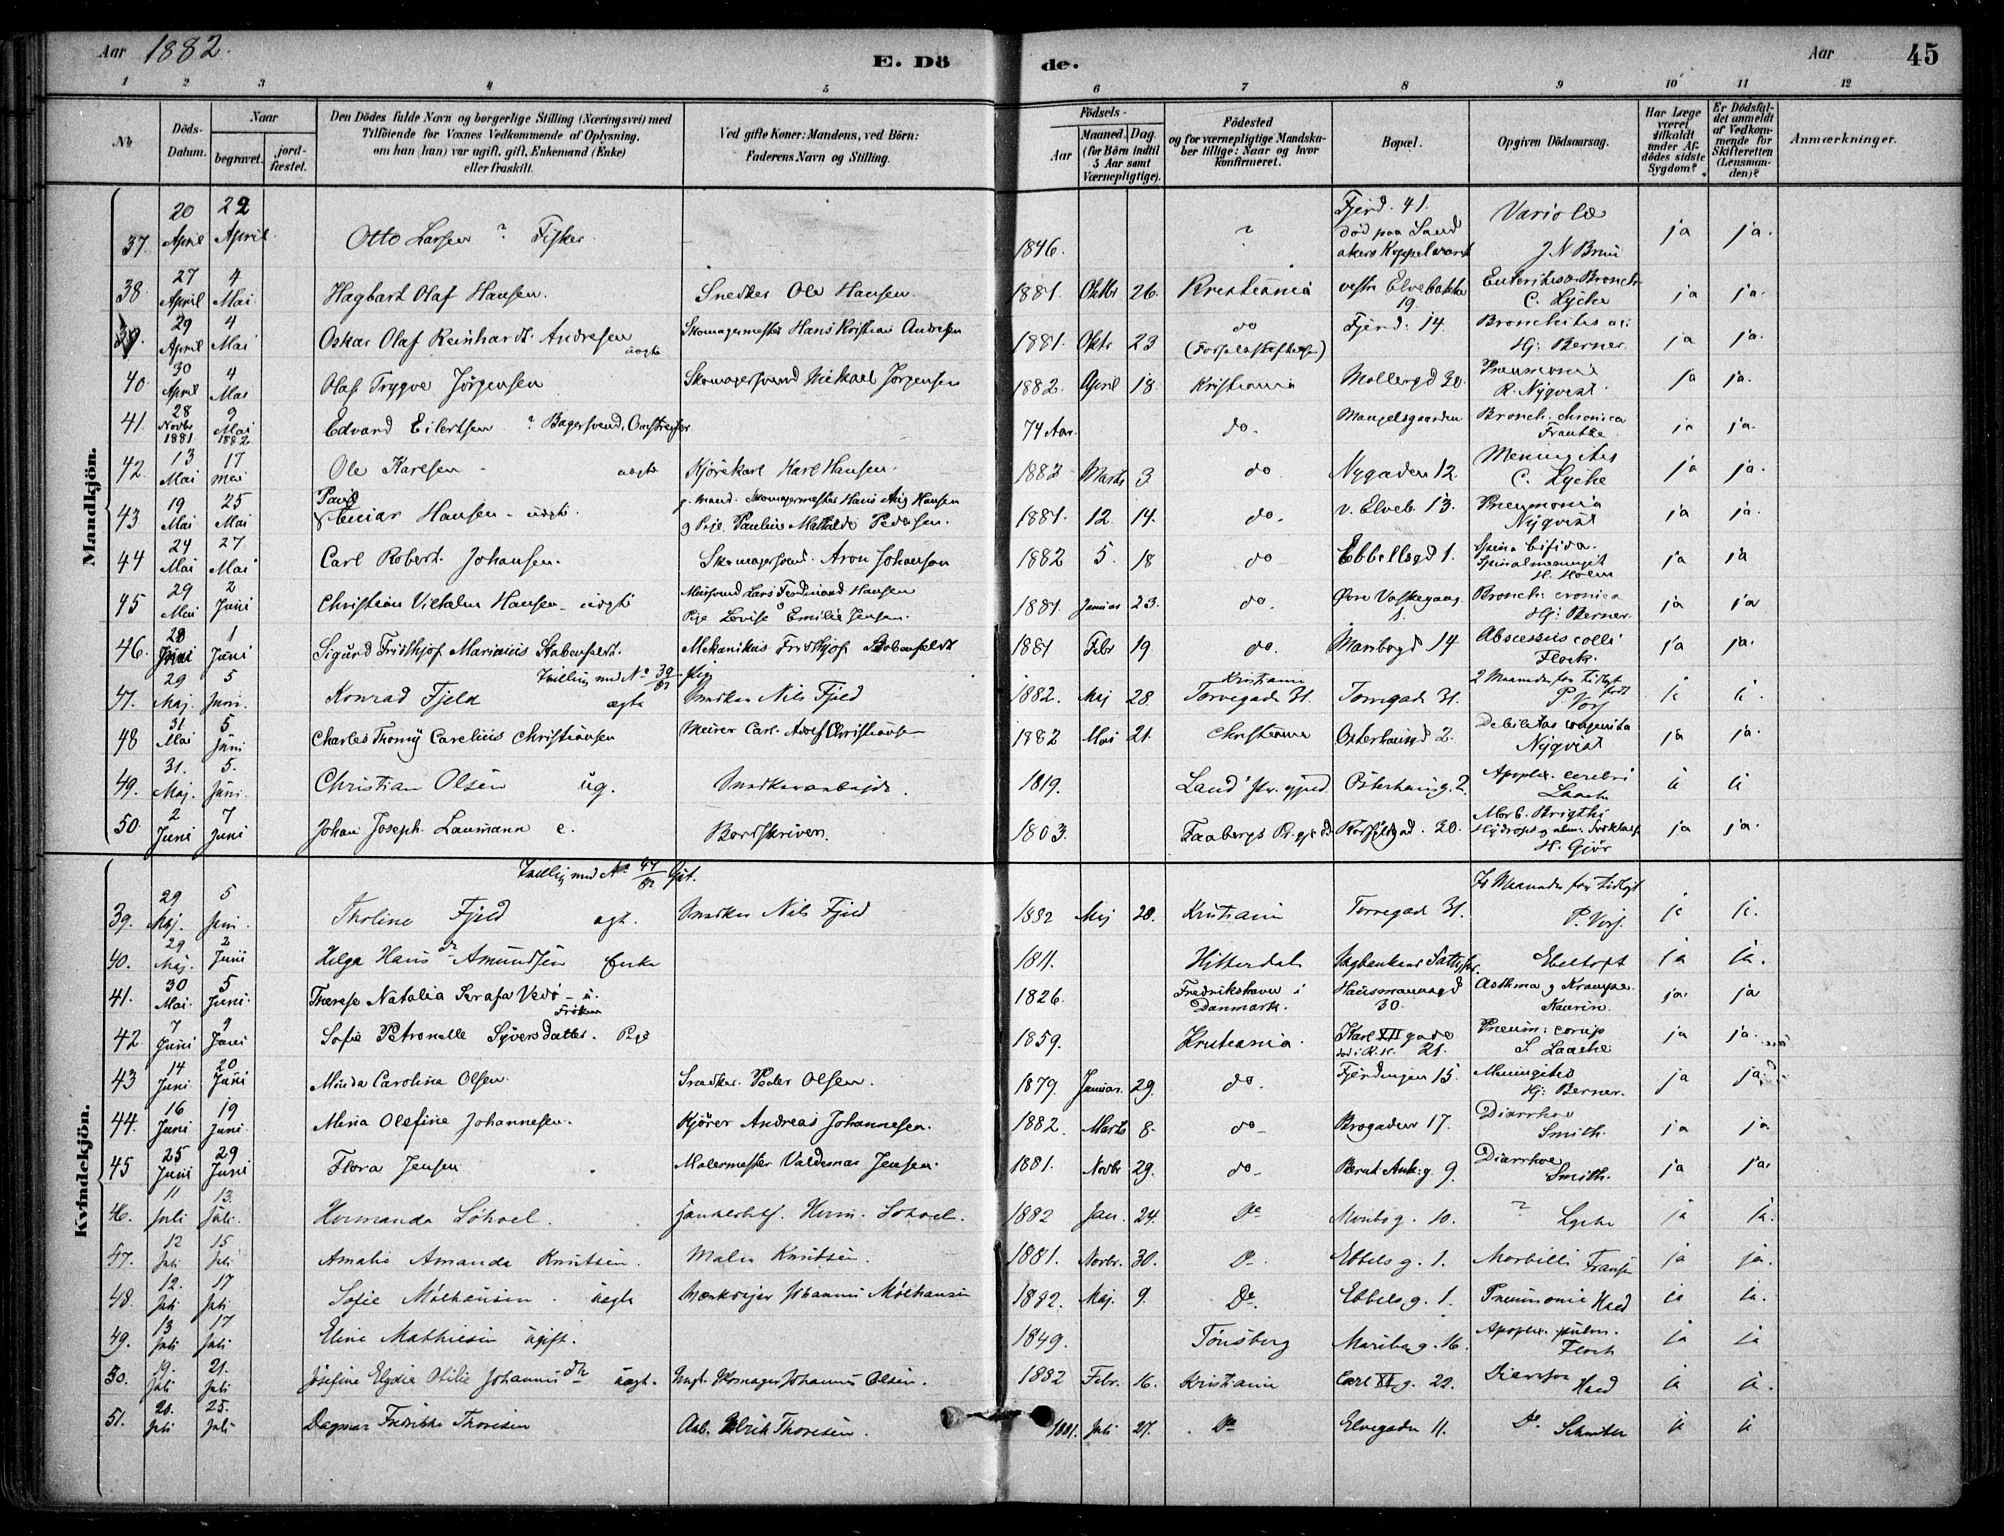 Aar 1882.
E. Dö de.
Aar
45
1 2 3 4 5 6 7 8 9 10 11 12
No
Döds-Datum.
Naar
begravet.
jord-fæstet.
Den Dödes fulde Navn og borgerlige Stilling (Næringsvei) med
Tilföiende for Voxnes Vedkommende af Oplysning,
om han (hun) var ugift, gift, Enkemand (Enke)
eller fraskilt.
Ved gifte Koner: Mandens, ved Börn:
Faderens Navn og Stilling.
Födsels-
Aar
Maaned. Dag.
(for Börn indtil
5 Aar samt
Værnepligtige).
Födested
og for værnepligtige Mandska-
ber tillige: Naar og hvor
konfirmeret.
Bopæl.
Opgiven Dödsaarsag.
Har Læge
været
tilkaldt
under Af-
dödes sidste
Sygdom?
Er Dödsfal-
det anmeldt
af Vedkom-
mende for
Skifteretten
(Lensman-
den)?
Anmærkninger.
Mandkjön.
37. 20 April 22 April Otto Larsen ? Fisker. 1846. ? Fjerd. 41. død paa Sand akers Koppelvarck Variolæ J N Bruu ja ja.
38. 27 April 4 Mai Hagbart Olaf Hansen. Snedker Ole Hansen. 1881. Oktbr 26. Kristiania vestre Elvebakke 19 C. Lyche ja ja.
39. 29 April 4 Mai Oskar Olaf Reinhardt Andresen uægte Skomagermester Hans Kristian Andresen 1881. Oktr 23 do (Fødselsstiftelsen) Fjerd: 14. Bronchitis Hj: Berner. ja ja.
40 30 April 4 Mai Olaf Trygve Jørgensen Skomagersvend Mikael Jørgensen 1882. April 18. Kristiania Møllergd 30. Pneumonia R. Nyqvist ja ja.
41. 28 Novbr 1881 9 Mai 1882 Edvard Eilertsen ? Bagersvend, Omstreifer 74 Aar. do. Mangelsgaarden Bronch. chronica Frantze ja ja.
42. 13 Mai 17 mai Ole Karlsen - uægte Kjørekarl Karl Hansen. 1882 Marts 3 do Nygaden 12. Meningitis C. Lyche ja ja.
43 19 Mai 25 Mai Paul Einar Hansen - uægte. g. mand. Skomagermester Hans Aug Hansen
g Pige Pauline Mathilde Pedersen. 1881. 12 14. do. v. Elveb 13. Pneumonia Nyqvist ja ja.
44 24 Mai 27 Mai Carl Robert Johansen. Skomagersvend. Aron Johanson 1882 5. 18 do Ebbellsgd 1. Spina bifida. Spinalmeningit H. Holm ja ja
45 29 Mai 2 Juni Christian Vilhelm Hansen - uægte Mursvend Lars Ferdinand Hansen
Pige Lovise Emilie Jensen. 1881. Januar 23. do. Øvre Vaskegang 1. Bronch: cronica Hj: Berner. ja ja
46. 28 1 Juni Sigurd Fridthjof Marinius Stabenfeldt. Mekanikus Fridthjof Stabenfeldt 1881 Febr 19 do. Maribogd 14 Abscessus colli Flock. ja ja.
Tvilling med No 39/82 Pige
47. 29 Maj. 5 Juni. Konrad Fjeld ægte Snedker Nils Fjeld 1882. Maj 28. Kristiania Torvegad 31. Torvegad 31. 2 Maaneder for tidligt født P. Vors ja ja.
48 31. Mai 5 Juni Charles Thomy Carelius Christiansen Murer Carl Adolf Christiansen 1882 Mai 21. Christiania Østerhausgd 2. Debilitas congenita Nyqvist ja ja.
49. 31. Maj. 5. Juni Christian Olsen ug. Snedkerarbejde. 1819. Land Østerhausg. 2. Apoplex. cerebri Laache ja ja
50. 2 Juni 7 Juni Johan Joseph Laumann e. Bordskriver. 1803. Faabergs Pr.gjeld 20. Morb. Brigthi H. Gjør ja ja.
Kvindekjön.
Tvilling med No 47/82 Gut.
39. 29 Maj. 5 Juni. Tholine Fjeld ægt. Snedker Nils Fjeld 1882 Maj 28. Kristiania Torvegad 31. 2 Maaneder for tidligt P. Vors. ja ja.
40. 29 Maj. 2 Juni Helga Hans dr Amundsen Enke 1811. Hitterdal Ebeltoft ja ja.
41. 30 Mai 5 Juni Therese Natalia Serafa Vedø - u. Frøken 1826. Fredrikshavn i Danmark. Hausmannsgd 30. Asthma g Krampe Kaurin. ja. ja
42. 7 Juni 9 Juni Sofie Petronelle Syversdatter. Pige 1859. Kristiania. Karl XII gade 21. Pneum: corup S. Laache ja ja.
43 14 Juni. 20 Juni Minda Caroline Olsen. Snedker. Peder Olsen. 1879 Januar. 29. do. Fjerdingen 15. Meningitis Hj: Berner. ja ja.
44. 16 Juni 19 Juni Mina Olefine Johannesen. Kjører Andreas Johannesen. 1882. Marts 8. do - Brogaden 17. Diarrhoe Smith. ja ja
45 25 Juni 29 Juni Flora Jensen Malermester Valdemar Jensen. 1881. Novbr 29. do - Bernt Ank:g. 9. Diarrhoe Smith. ja ja.
46. 11 Juli 13. Juli. Hermanda Sohoel. Herm. Sohoel. 1882 Jan. 24. Do Maribog. 10. ? Lyche ja ja.
47. 12 Juli 15 Juli Amalie Amanda Knutsen. Maler Knutsen. 1881. Novbr. 30. Do. Ebbelsg. 1. Morbilli ja ja.
48. 12. Juli 17 Juli Sofie Mølhausen. uægte Johannes Mølhausen 1882. Maj. 9. Do. Ebbelsg. 1. Pneumonia ja ja.
49. 13 Juli 17 Juli Eline Mathiesen ugift. 1849. Tønsberg Maribog. 16. Apoplex. pulm. Flock ja ja
50. 19. Juli 21. Juli Josefine Elydia Otilie Johannes dtr uægt. Ungk. Skomager Johannes Olsen. 1882 Febr. 16. Kristiania Carl XII g. 22. Diarrhoe ja ja.
51. 20. Juli 25. Juli Dagmar Fredrikke Thoresen Arb. Ulrik Thoresen. 1881. Juli 27. Do Elvegaden 11. Do. ja ja